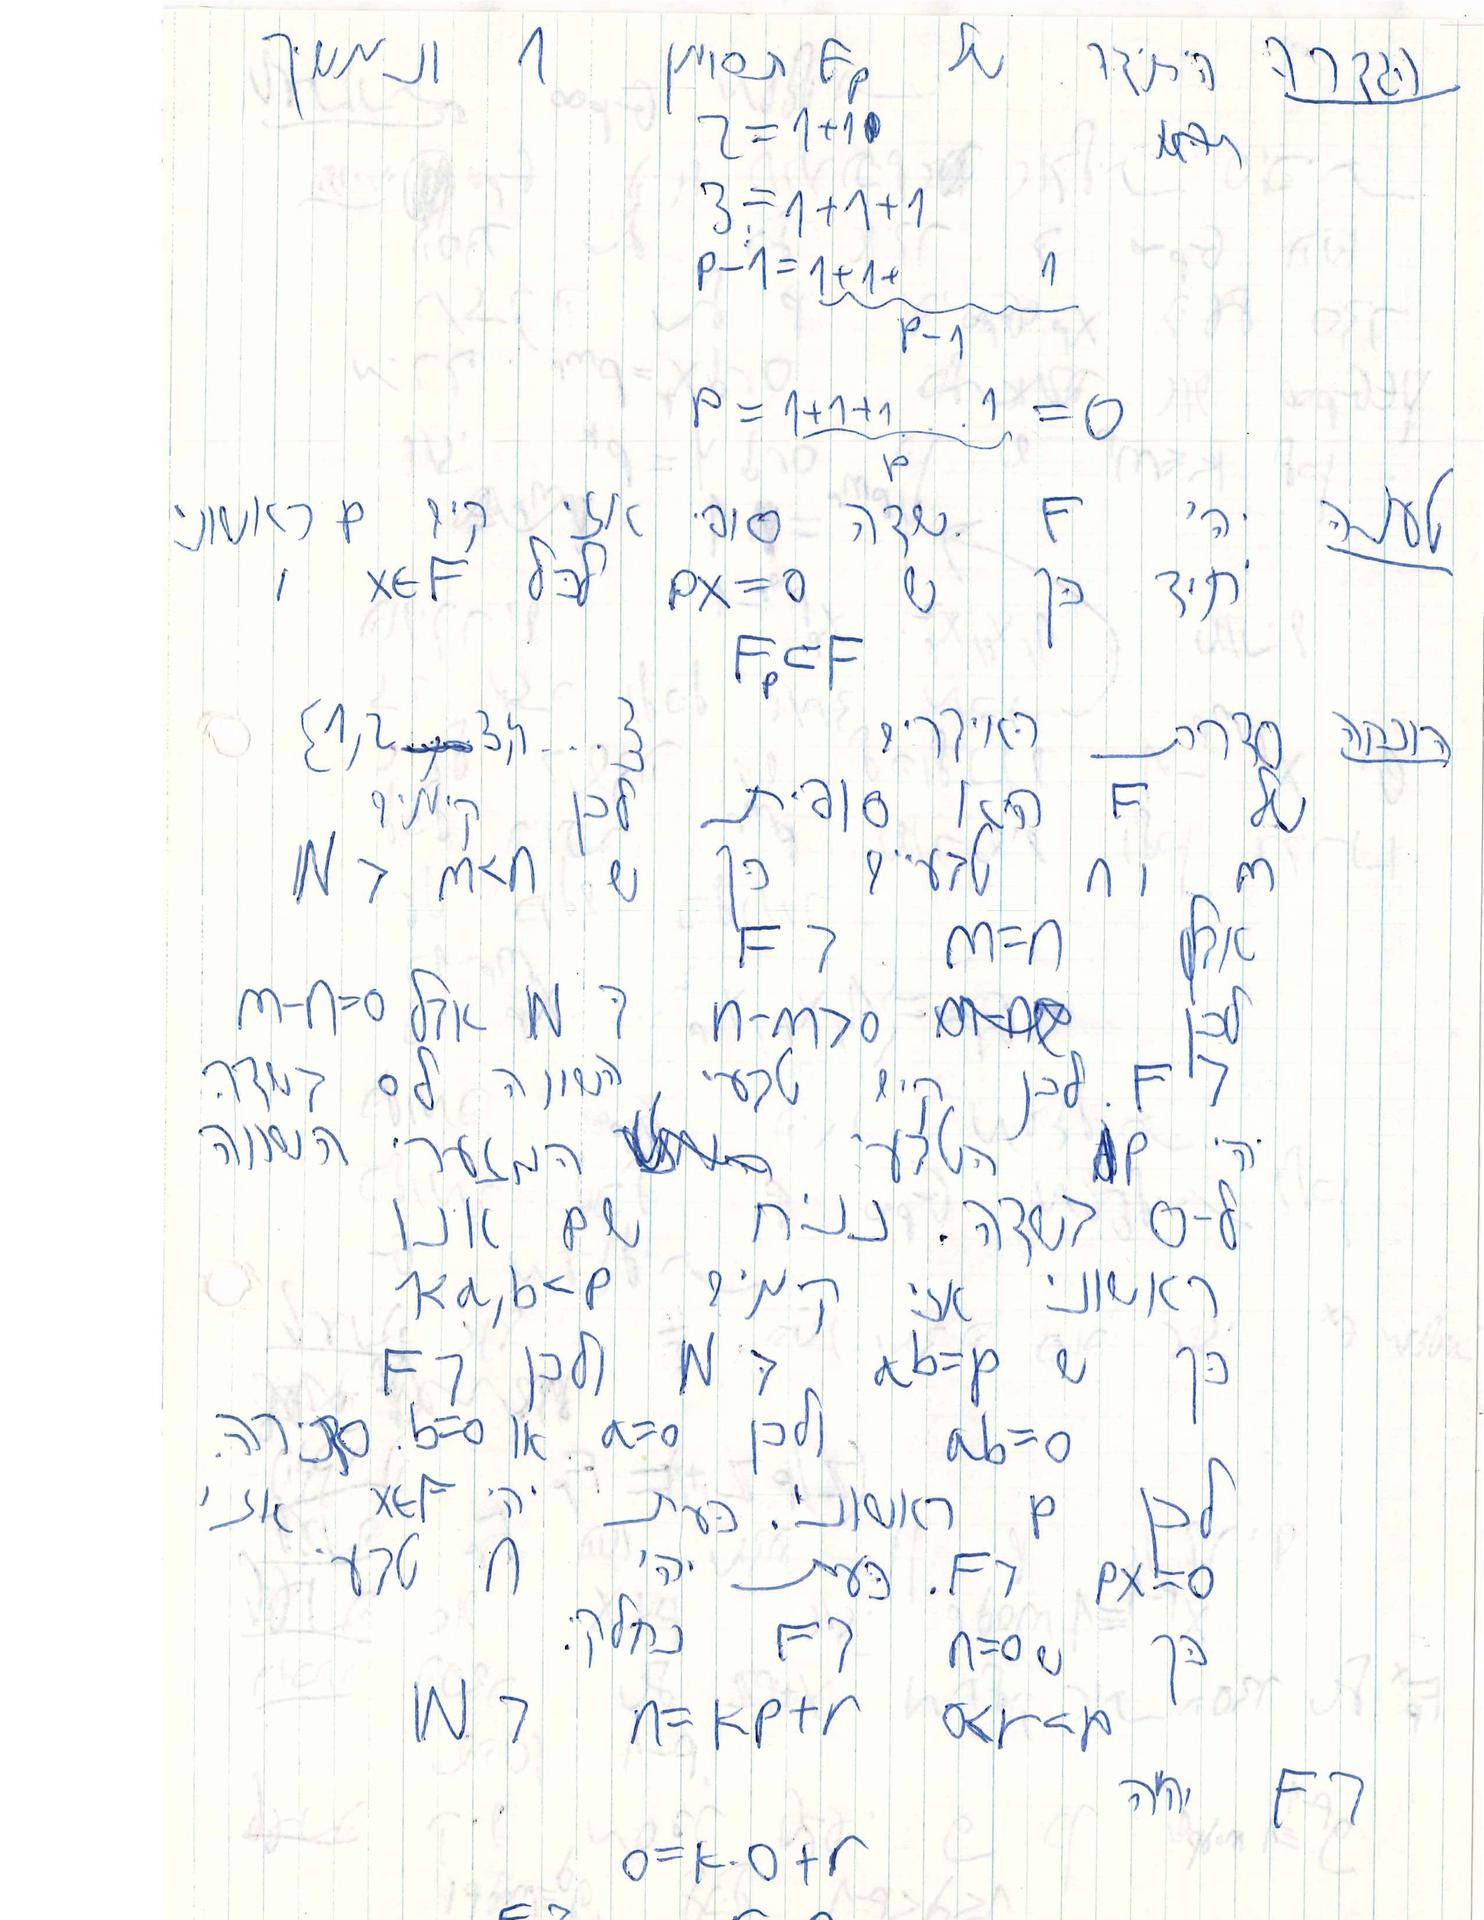 הגדרה היחידה של Fp תסומן 1 ונמשיך
הלאה 2=1+1
3=1+1+1
p-1=1+1+ 1
p-1
p=1+1+1...1=0
p
טענה יהי F שדה סופי אזי קיים p ראשוני
יחיד כך ש px=0 לכל x∈F ו
Fp⊂F
הוכחה סדרת האיברים {1,2,3...}
של F היא סופית לכן קיימים
m ו n טבעיים כך ש m<n ב N
אבל m=n ב F
לכן n-m>0 ב N אבל m-n=0
ב F. לכן קיים טבעי השווה ל0 בשדה.
יהי p הטבעי המזערי השווה
ל-0 בשדה. נניח שp אינו
ראשוני אזי קיימים 1<a,b<p
כך ש ab=p ב N ולכן ב F
ab=0 ולכן a=0 או b=0. סתירה.
לכן p ראשוני. כעת יהי x∈F אזי
px=0 ב F. כעת יהי n טבעי
כך ש n=0 ב F נחלק:
n=kp+r 0<r<p ב N
ב F יהיה
0=k·0+r